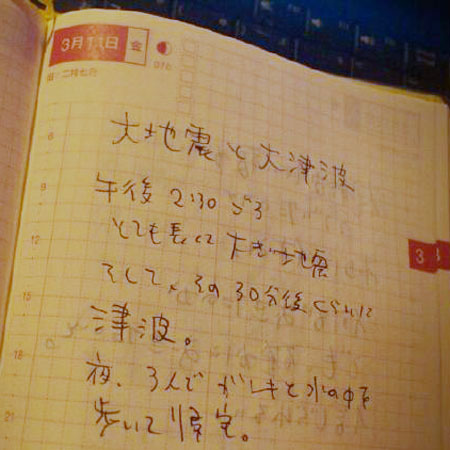 3月11日 金
旧・二月七日
6
大地震と大津波
9
午後 2:30 ごろ
とても長くて 大きい地震
3
12
そして、その30分後くらいに
15
津波。
18
夜、3人で ガレキと水の中を
21
歩いて帰宅。